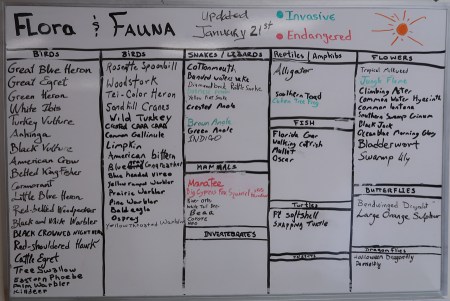 Flora & Fauna
Updated
January 21st
Invasive
Endangered
BIRDS
Great Blue Heron
Great Egret
Green Heron
White Ibis
Turkey Vulture
Anhinga
Black Vulture
American Crow
Belted King Fisher
Cormorant
Little Blue Heron
Red-bellied Woodpecker
Black and White Warbler
BLACK CROWNED NIGHT HERON
Red-shouldered Hawk
Cattle Egret
Tree Swallow
Eastern Phoebe
Palm Warbler
Killdeer
BIRDS
Roseatte Spoonbill
Woodstork
Tri-Color Heron
Sandhill Cranes
Wild Turkey
Crested Cara Cara
Common Gallinule
Limpkin
American bittern
Blue Gray Gnatcatcher
Blue headed vireo
Yellow rumped warbler
Prairie Warbler
Pine Warbler
Bald eagle
Osprey
Yellow Throated Warbler
SNAKES / LIZARDS
Cottonmouth
Banded water snake
Diamondback Rattle Snake
Yellow Rat Snake
Crested Anole
Brown Anole
Green Anole
INDIGO
MAMMALS
Manatee
Big Cypress Fox Squirrel
River Otter
White Tail Deer
Bear
Coyote
INVERTEBRATES
Reptiles / Amphibs
Alligator
Southern Toad
Cuban Tree Frog
FISH
Florida Gar
Walking Catfish
Mullet
Oscar
Turtles
Fl Softshell
Snapping Turtle
FLOWERS
Climbing Aster
Common Water Hyacinth
Common lantana
Southern Swamp Crinum
Black Jack
Oceanblue Morning Glory
Bladderwort
Swamp lily
BUTTERFLIES
Bandwinged
Large Orange Sulphur
Dragonflies
Halloween Dragonfly
Damselfly